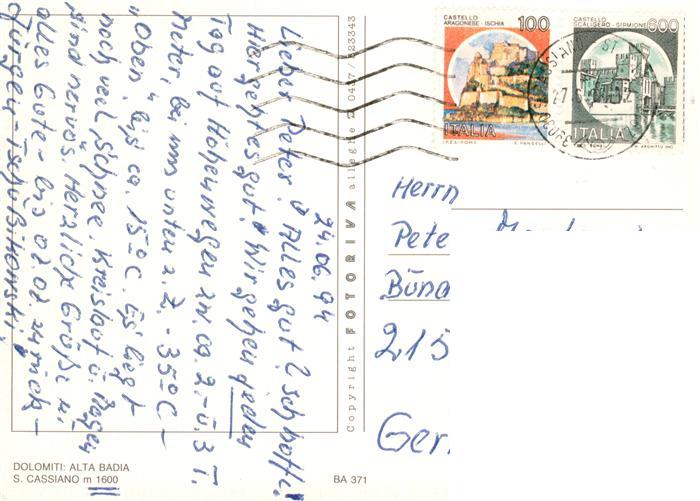 CASTELLO
ARAGONESE - ISCHIA
100
ITALIA
I.P.Z.S. - ROMA
E. VANGELLI
CASTELLO
SCALIGERO - SIRMIONE
600
ITALIA
24.06.94
Lieber Peter! Alles gut? Ich hoffe.
Hier geht es gut. Wir gehen jeden
Tag auf Höhenwegen zw. ca. 2.- u. 3 T.
Meter, bei uns unten z. Z. - 35°C -
"Oben" bis ca. 15°C. Es liegt
noch viel Schnee. Kreislauf u. Magen
sind nervös. Herzliche Grüße u.
alles Gute - bis 02.07. zurück -
Jürgen
Copyright FOTORIVA alleghe
Herrn
Pete
Büna
215
Ger
DOLOMITI: ALTA BADIA
S. CASSIANO m 1600
BA 371